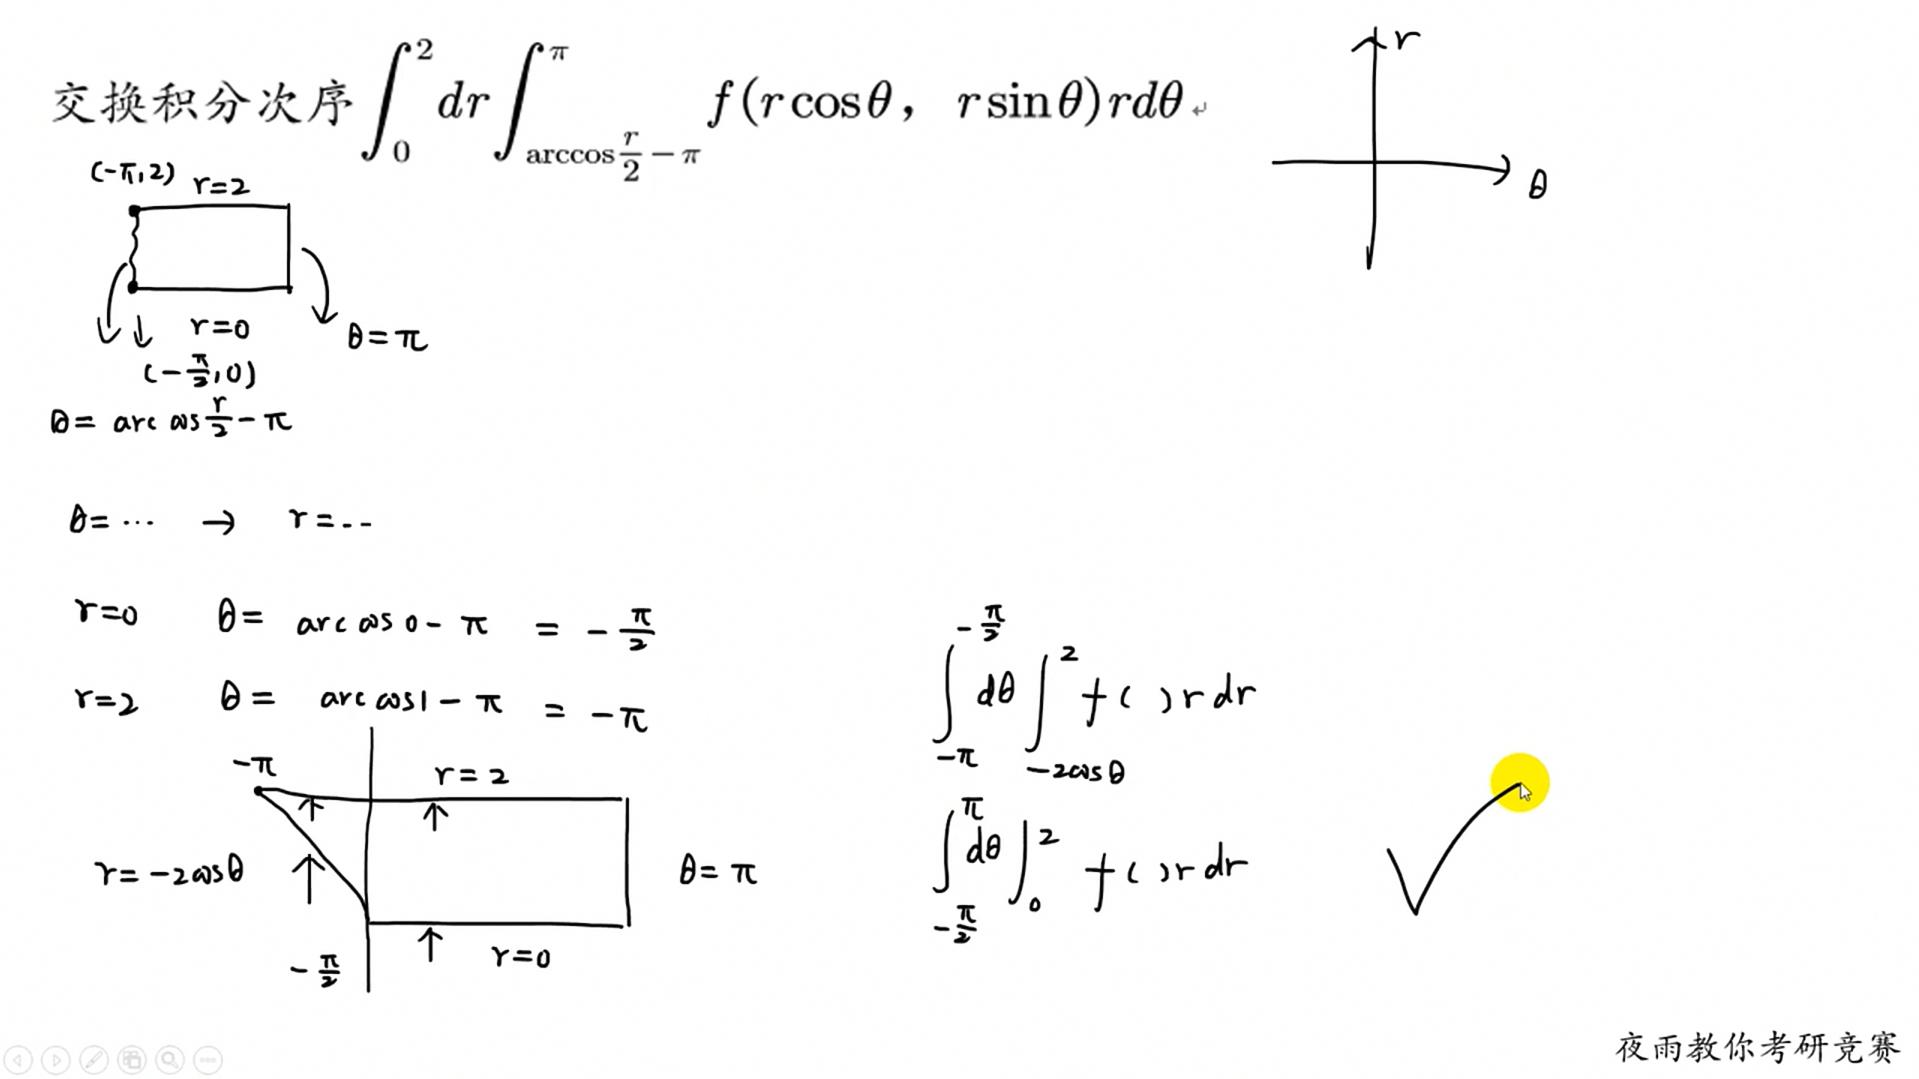 交换积分次序∫₀² dr ∫_{arccos r/2 − π}^{π} f(r cosθ, r sinθ)r dθ
r
θ
(-π,2) r=2
r=0
θ=π
(-π/2,0)
θ= arc cos r/2 - π
θ= ··· → r=--
r=0 θ= arc cos 0 - π = -π/2
r=2 θ= arc cos 1 - π = -π
-π
r=2
r=-2cosθ
θ=π
-π/2
r=0
∫_{-π}^{-π/2} dθ ∫_{-2cosθ}^{2} f( )r dr
∫_{-π/2}^{π} dθ ∫_{0}^{2} f( )r dr
夜雨教你考研竞赛